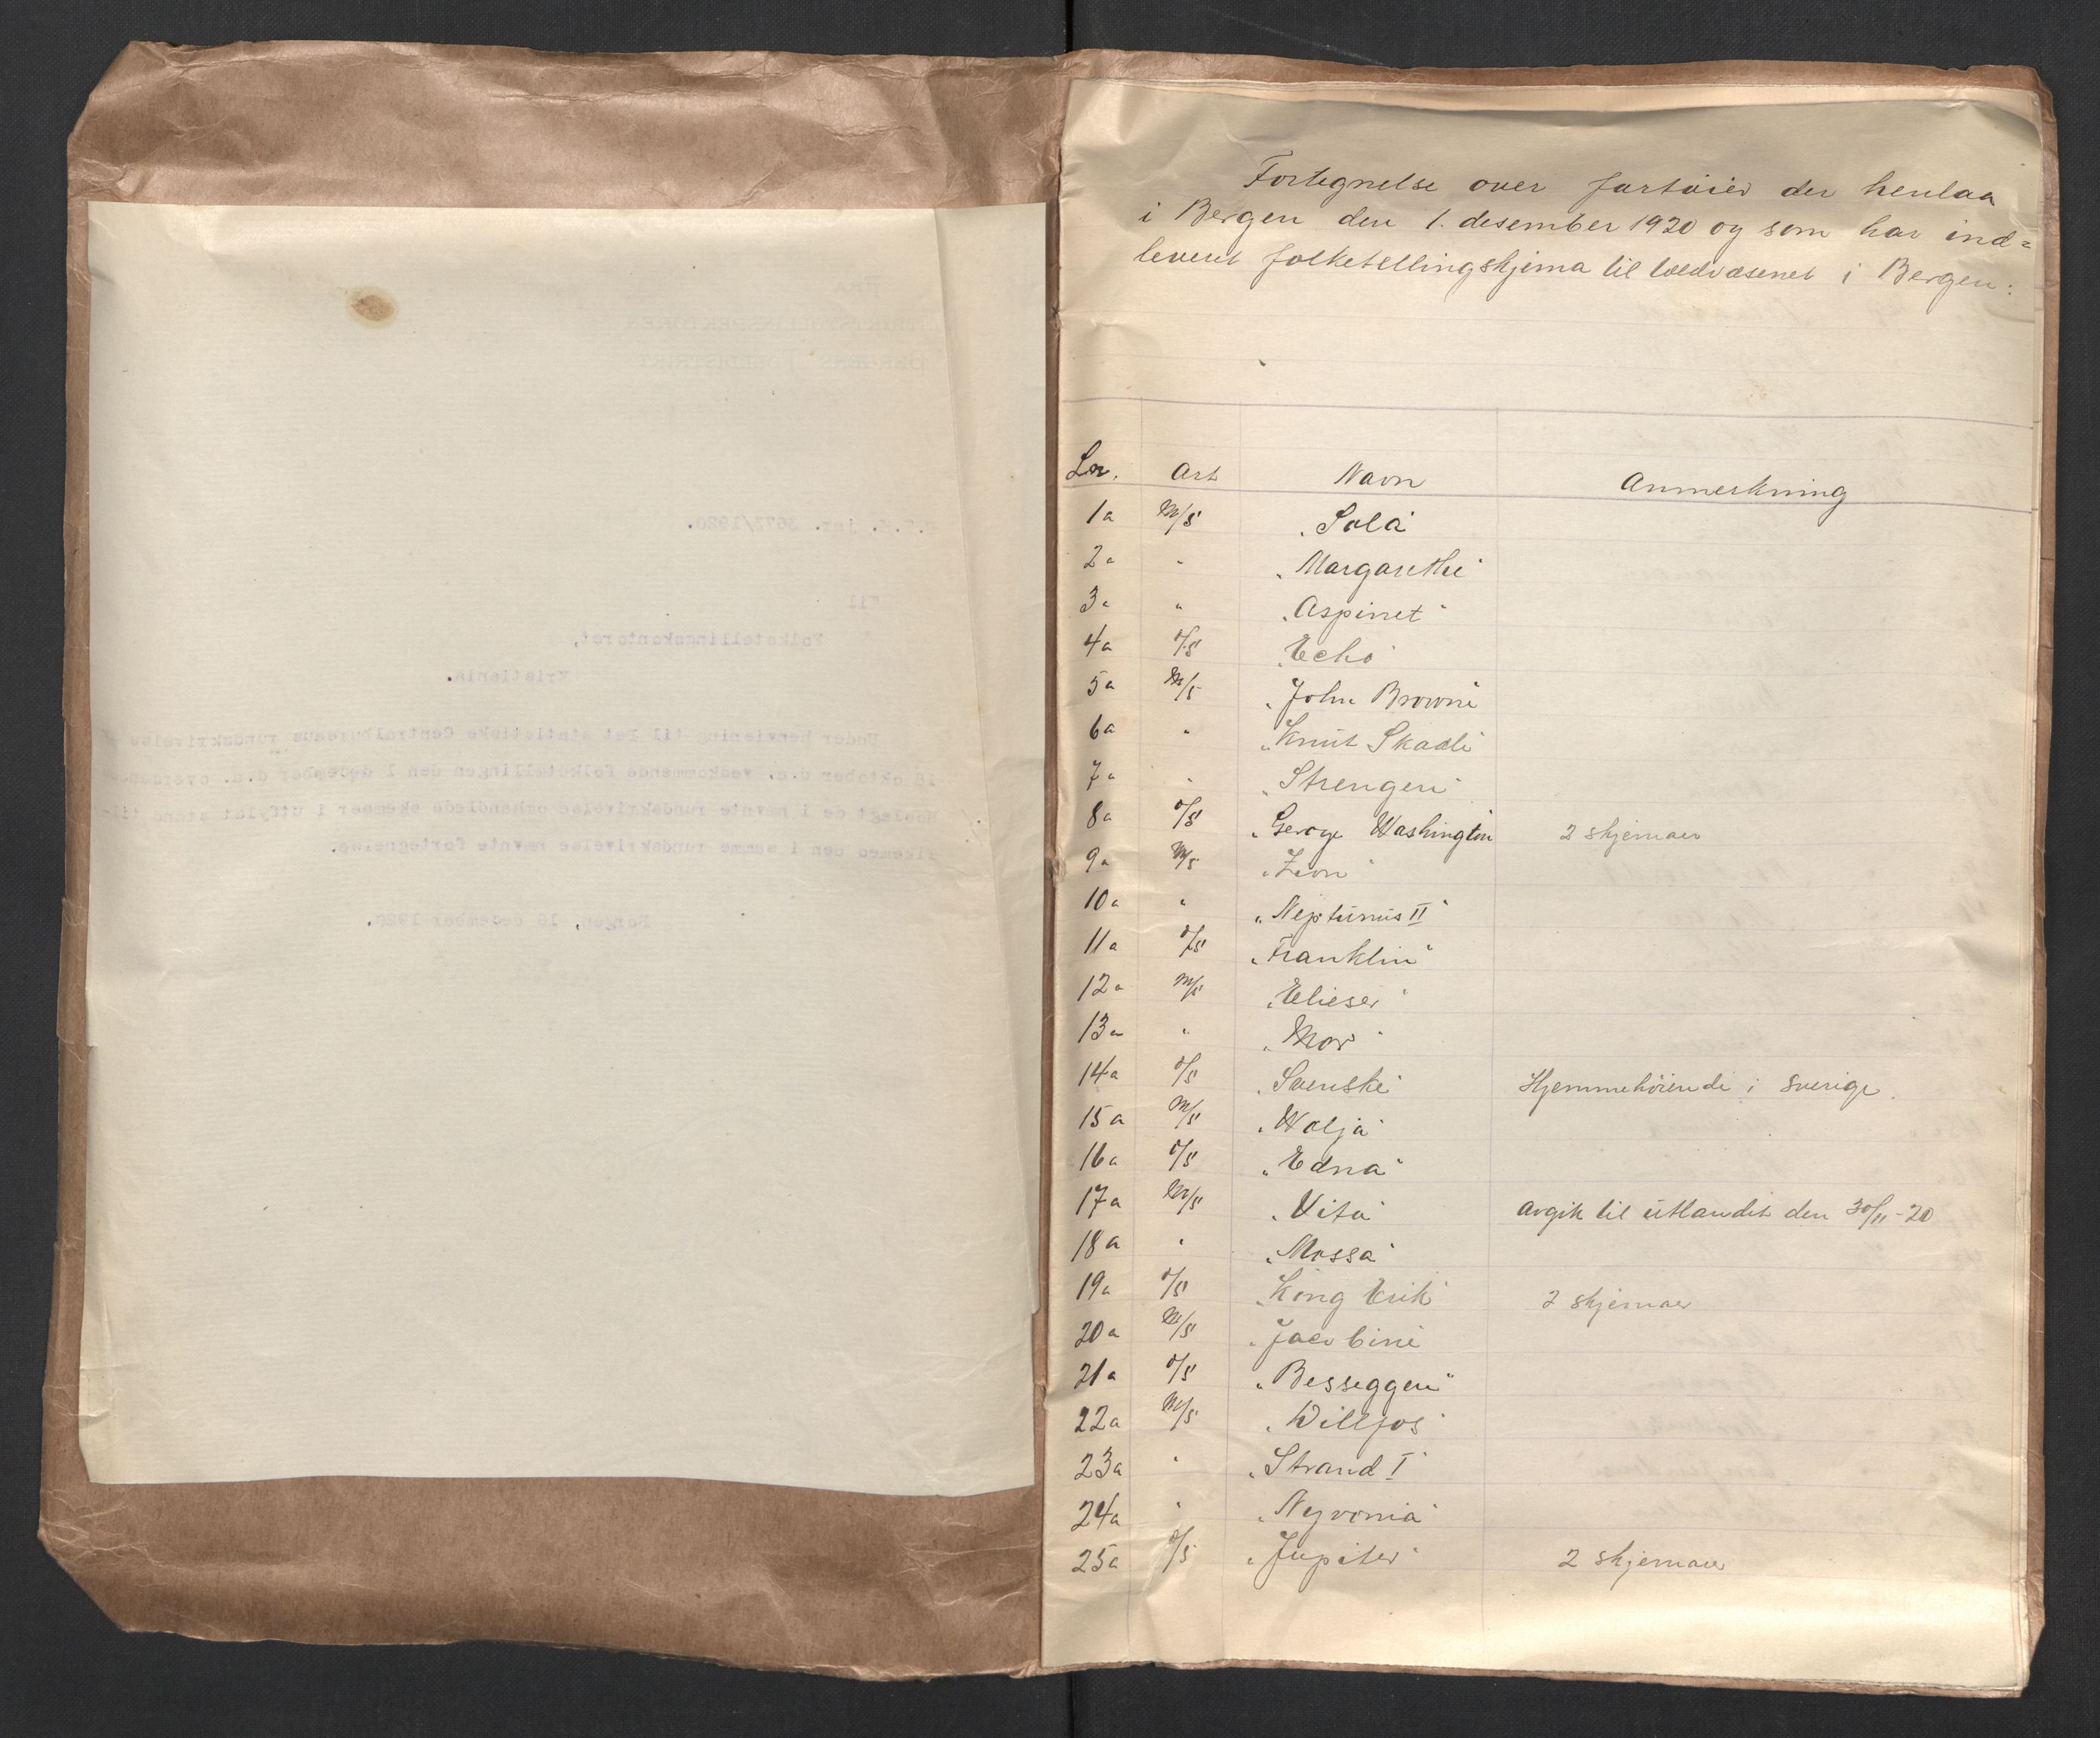 Fortegnelse over fartøier der henlaa
i Bergen den 1. desember 1920 og som har ind=
leveret folketellingskjema til toldvæsenet i Bergen:
Lnr. Art Navn Anmerkning
1a M/S „Sola"
2a " „Margarethe"
3a " „Aspinet"
4a D/S „Echo"
5a M/S „John Browne"
6a " „Knut Skade"
7a " „Strengen"
8a D/S „George Washington 2 skjemaer
9a M/S „Zion"
10a " „Neptunus II"
11a D/S „Franklin"
12a M/S „Elieser"
13a " „Mor"
14a D/S „Svenske" Hjemmehörende i Sverige.
15a M/S „Wolja"
16a D/S „Edna"
17a M/S „Vita" Avgik til utlandet den 30/11-20
18a " „Mossa"
19a D/S „Kong Erik" 2 skjemaer
20a M/S „Jacobine"
21a D/S „Besseggen"
22a M/S „Willjos"
23a " „Strand I"
24a " „Nyvonia"
25a D/S „Jupiter" 2 skjemaer
FRA
BERGENS TOLLDISTRIKT
Jnr. 3673/1920.
Til
Folketellingskontoret,
Kristiania.
Under henvisning til Det statistiske Centralbureaus rundskrivelse
18 oktober d.a. vedkommende folketellingen den 1 december d.a. oversendes
vedlagt de i nævnte rundskrivelse omhandlede skemaer i utfyldt stand til-
likemed den i samme rundskrivelse nævnte fortegnelse.
Bergen, 16 december 1920.